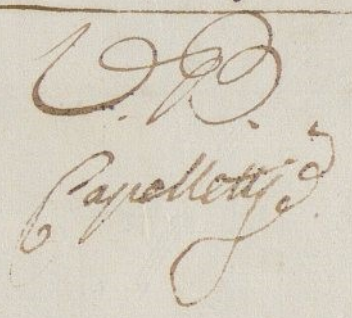 V. B.
Capelletti